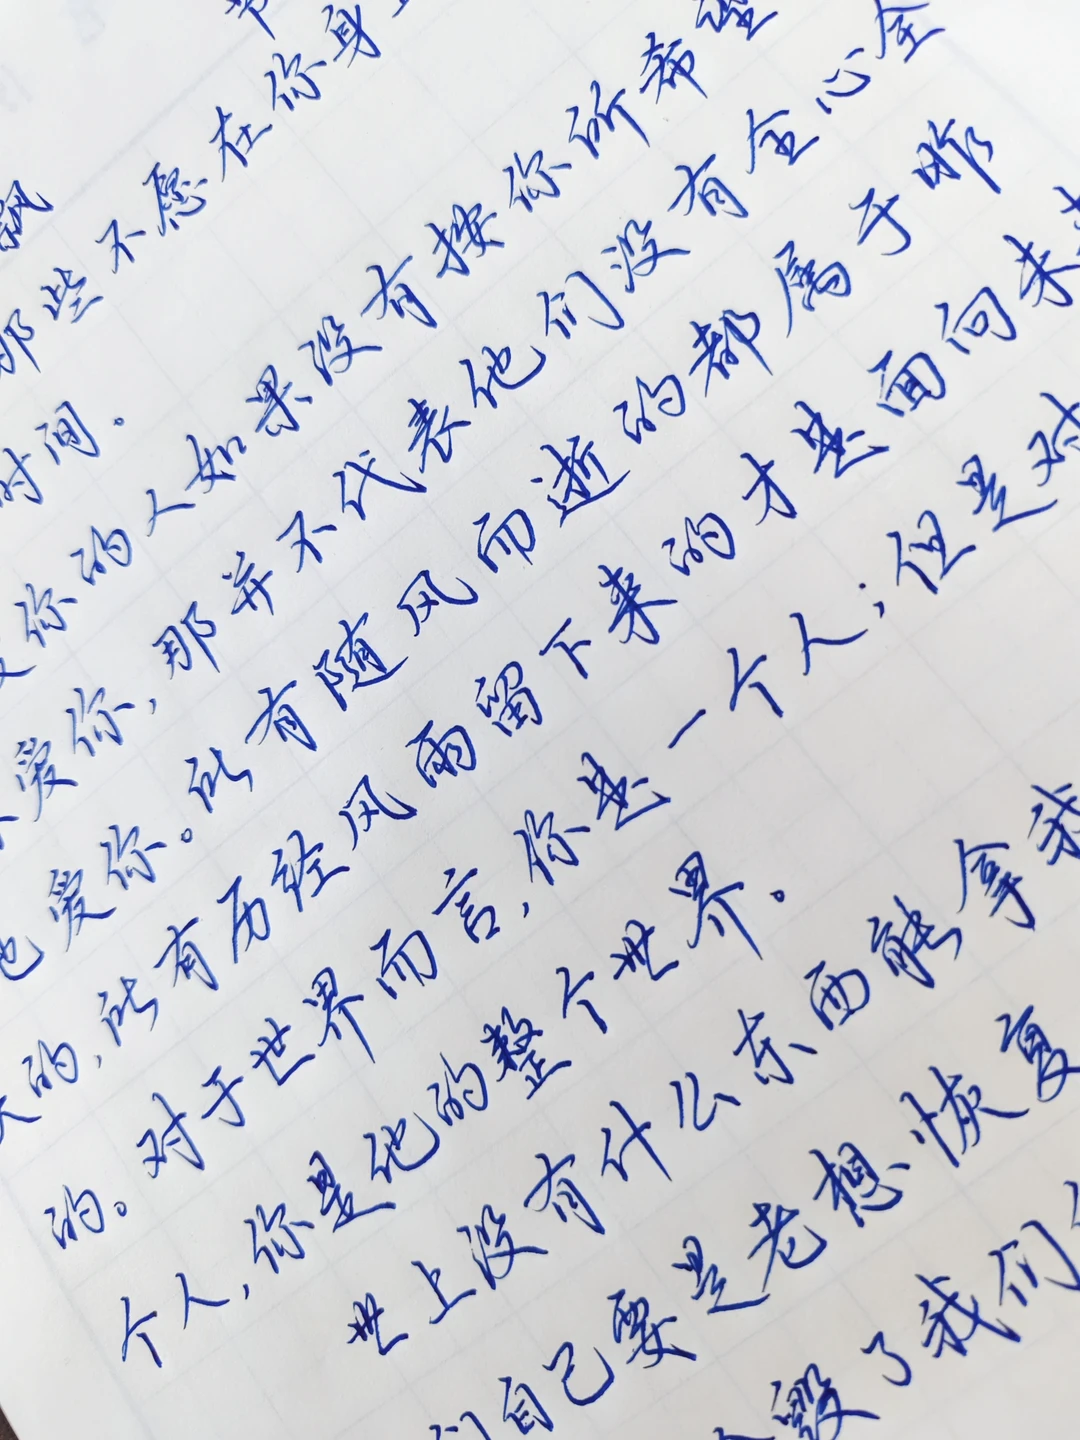 那些不愿在你身
时间。
你的人如果没有按你所希望
爱你,那并不代表他们没有全心全
也爱你。所有随风而逝的都属于昨
的,所有历经风雨留下来的才是面向未来
的。对于世界而言,你是一个人;但是对
个人,你是他的整个世界。
世上没有什么东西能拿我
们自己要是老想恢复
毁了我们